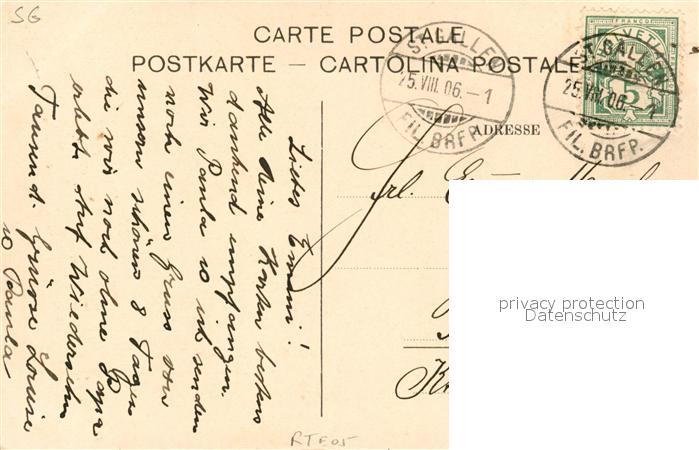 SG
CARTE POSTALE
POSTKARTE — CARTOLINA POSTALE
ST. GALLEN
25.VIII.06.-1
FIL. BRFP.
FRANCO
HELVETIA
5
ST. GALLEN
25.VIII.06.-1
FIL. BRFP.
ADRESSE
Frl.
privacy protection
Datenschutz
Liebes Emmi!
Alle deine Karten bestens
dankend empfangen.
Wir Paula u ich senden
noch einen Gruss von
unsern schönen 8 Tagen
die wir noch ohne Papa
erlebt. Auf Wiedersehn
Tausend Grüsse Louise
u Paula
RTE05